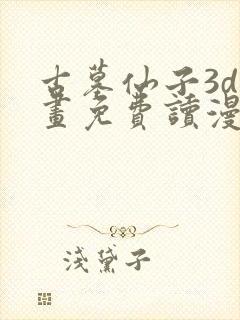 古墓仙子3d
畫免費讀漫
淺黛子